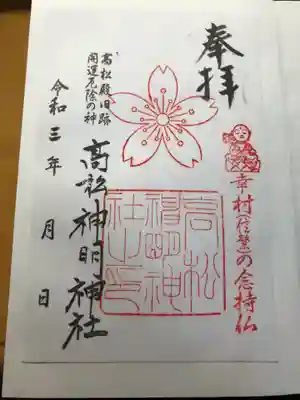 奉拝
幸村(信繁)の念持仏
高松神明神社
高松殿旧跡
開運厄除の神
高松神明神社
令和三年 月 日